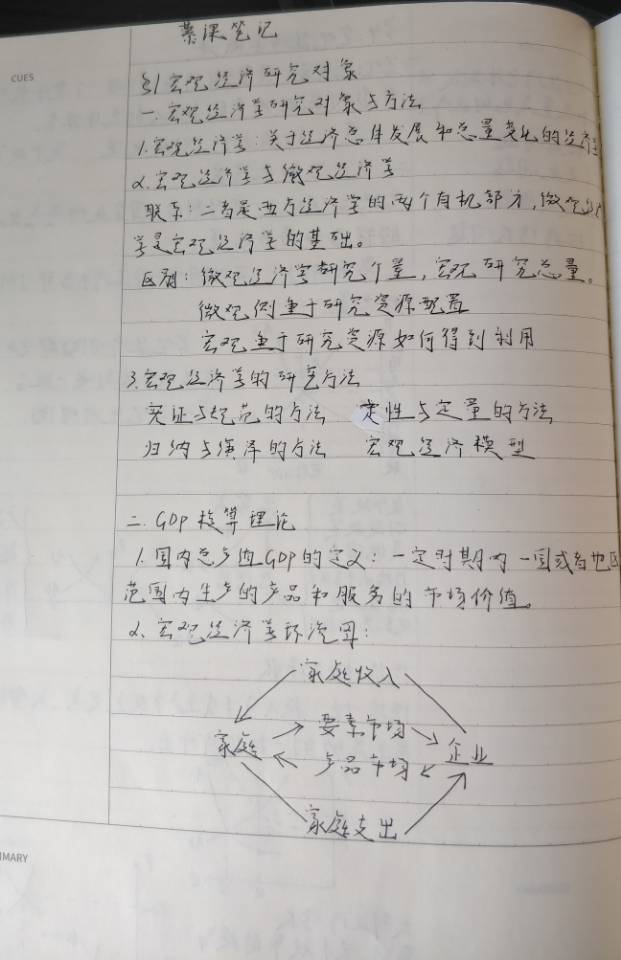 慕课笔记
CUES
§1 宏观经济研究对象
一. 宏观经济学研究对象与方法
1. 宏观经济学：关于经济总体发展和总量变化的经济学
2. 宏观经济学与微观经济学
联系：二者是西方经济学的两个有机部分，微观经济
学是宏观经济学的基础。
区别：微观经济学研究个量，宏观研究总量。
微观侧重于研究资源配置
宏观重于研究资源如何得到利用
3. 宏观经济学的研究方法
实证与规范的方法 定性与定量的方法
归纳与演泽的方法 宏观经济模型
二. GDP核算理论
1. 国内总产值GDP的定义：一定时期内一国或者地区
范围内生产的产品和服务的市场价值。
2. 宏观经济学环流图：
家庭收入
家庭 要素市场 企业
产品市场
家庭支出
MARY